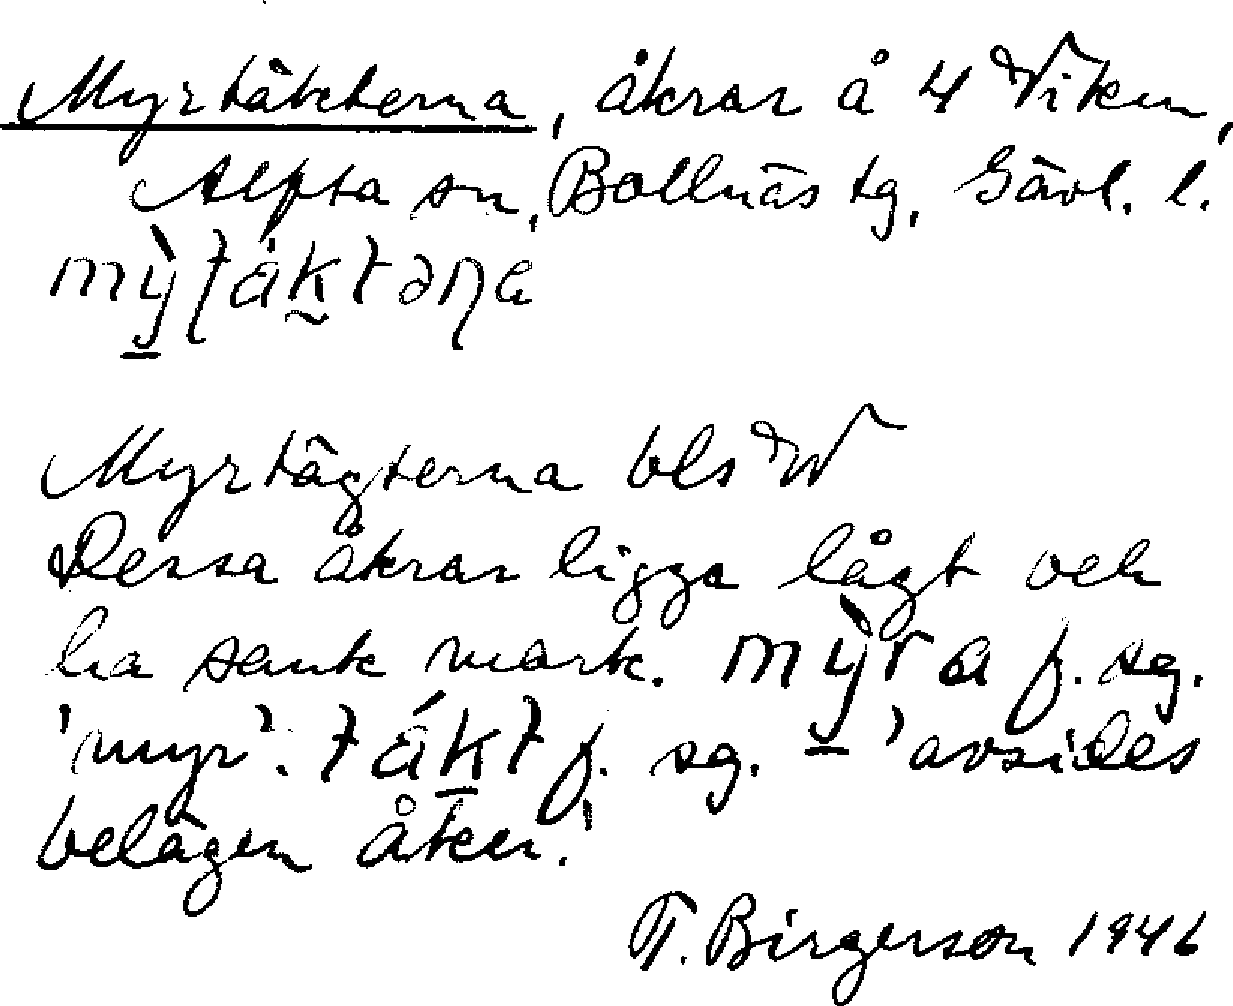 Myrtäkterna, åkrar å 4 Viken,
Alfta sn, Bollnäs tg, Gävl. l.
mỳʈák̰təɳa
Myrtägterna bls W
Dessa åkrar ligga lågt och
ha sank mark. mỳra f. sg.
'myr'. tákt f. sg. 'avsides
belägen åker.'
T. Birgerson 1946